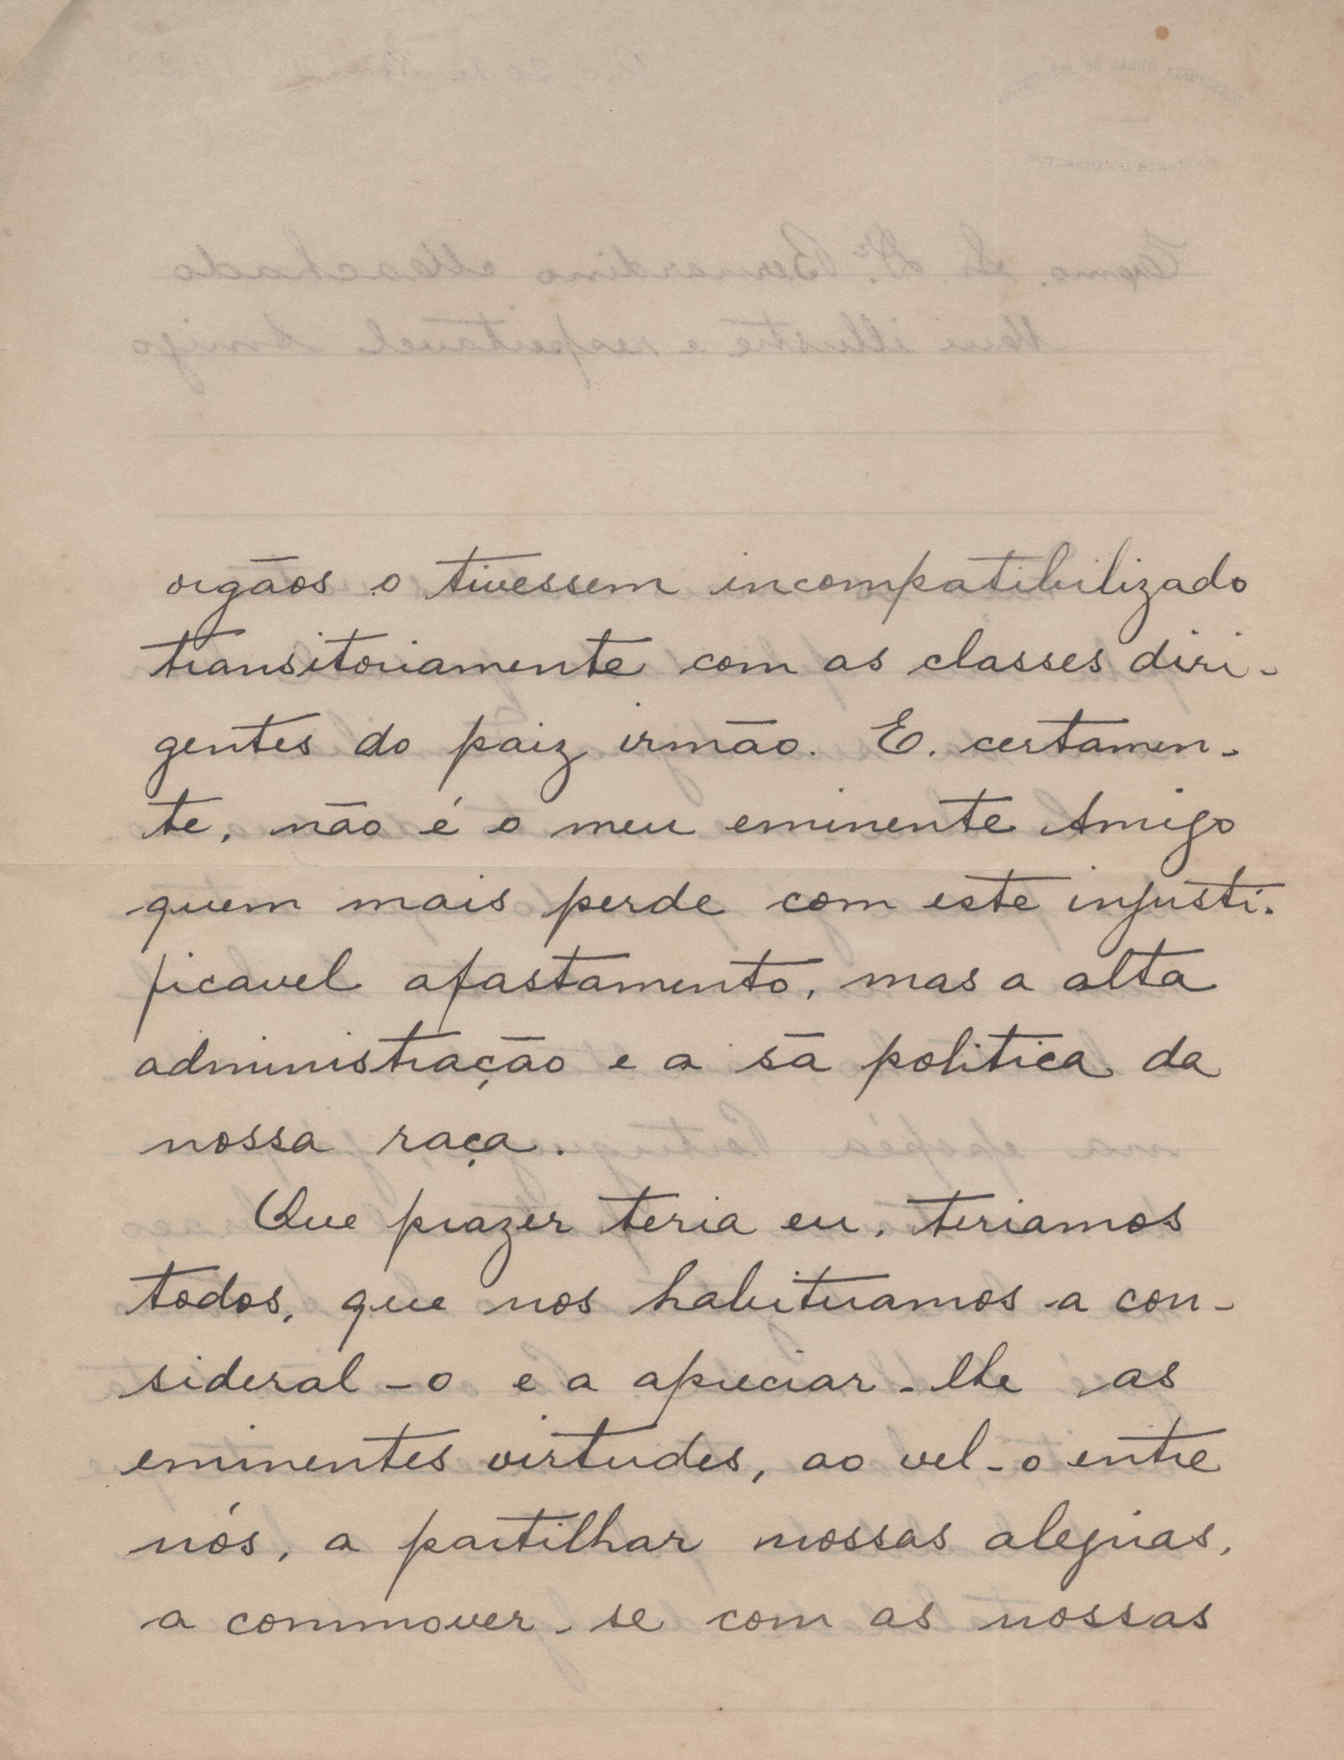 orgãos o tivessem incompatibilizado
transitoriamente com as classes diri-
gentes do paiz irmão. E. certamen-
te, não é o meu eminente Amigo
quem mais perde com este injusti-
ficavel afastamento, mas a alta
administração e a sã politica da
nossa raça.
Que prazer teria eu, teriamos
todos, que nos habituamos a con-
sideral-o e a apreciar-lhe as
eminentes virtudes, ao vel-o entre
nós, a partilhar nossas alegrias,
a commover-se com as nossas